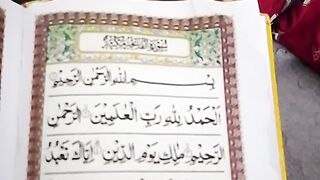 سُورَةُ الْفَاتِحَةِ مَكِّيَّةٌ
بِسْمِ اللهِ الرَّحْمٰنِ الرَّحِيْمِ
اَلْحَمْدُ لِلّٰهِ رَبِّ الْعٰلَمِيْنَ الرَّحْمٰنِ
الرَّحِيْمِ مٰلِكِ يَوْمِ الدِّيْنِ اِيَّاكَ نَعْبُدُ